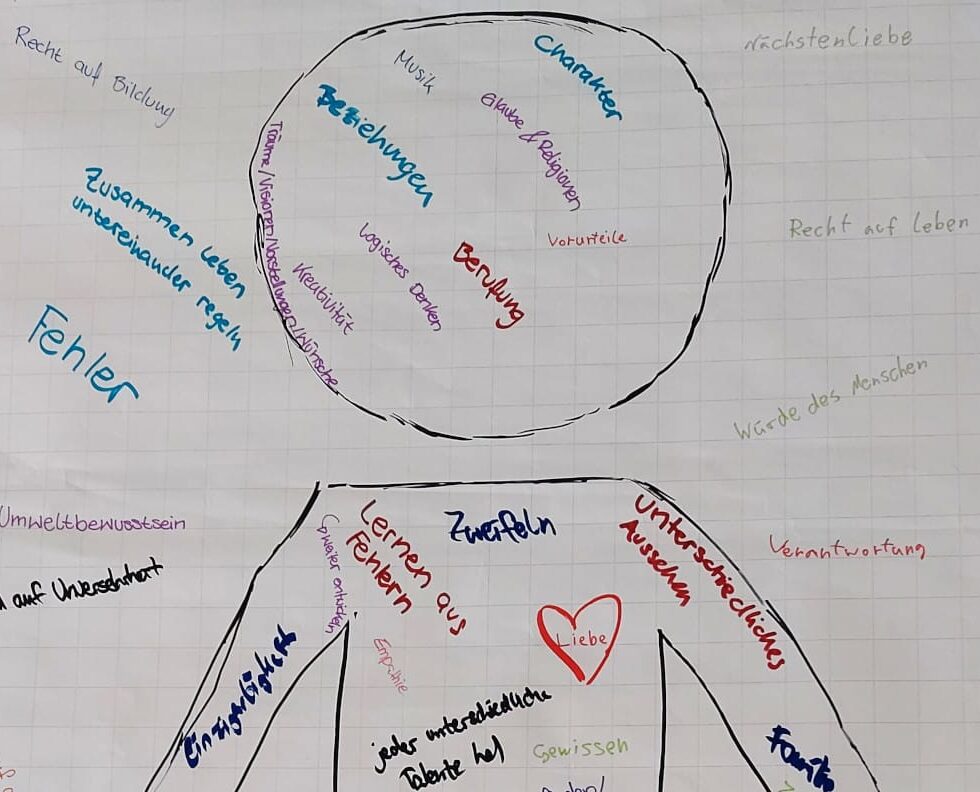 Recht auf Bildung
Musik
Charakter
Nächstenliebe
Beziehungen
Glaube & Religionen
Träume/Visionen/Vorstellungen/Wünsche
Zusammen Leben
untereinander regeln
Logisches Denken
Kreativität
Berufung
Vorurteile
Recht auf Leben
Fehler
Würde des Menschen
Umweltbewusstsein
auf Unversehrtheit
weiter entwickeln
Lernen aus
Fehlern
Zweifeln
Unterschiedliches
Aussehen
Verantwortung
Liebe
Empathie
Einzigartigkeit
jeder unterschiedliche
Talente hat
Gewissen